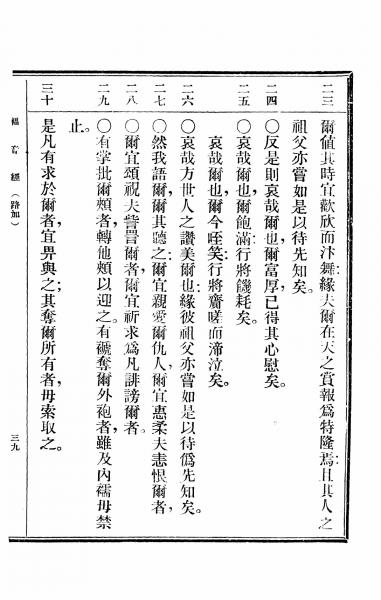 二三
爾値其時宜歡欣而汴舞緣夫爾在天之賞報爲特隆焉且其人之
祖父亦嘗如是以待先知矣。
二四
〇反是則哀哉爾也爾富厚已得其心慰矣。
二五
〇哀哉爾也爾飽滿行將饑耗矣。
哀哉爾也爾今咥笑行將齎嗟而涕泣矣。
二六
〇哀哉方世人之讚美爾也緣彼祖父亦嘗如是以待僞先知矣。
二七
〇然我語爾爾其聽之爾宜親愛爾仇人爾宜惠柔夫恚恨爾者、
二八
〇爾宜頌祝夫詈爾者爾宜祈求爲凡誹謗爾者。
二九
〇有掌批爾頰者轉他頰以迎之有褫奪爾外袍者雖及內襦毋禁
止。
三十
是凡有求於爾者宜畀與之其奪爾所有者毋索取之。
福音經（路加）
三九